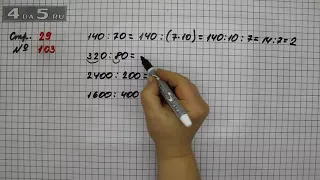 4 АБ 5 .RU
Стр. 29
№ 103
140 : 70 = 140 : (7·10) = 140 : 10 : 7 = 14 : 7 = 2
320 : 80 =
2400 : 200 =
1600 : 400